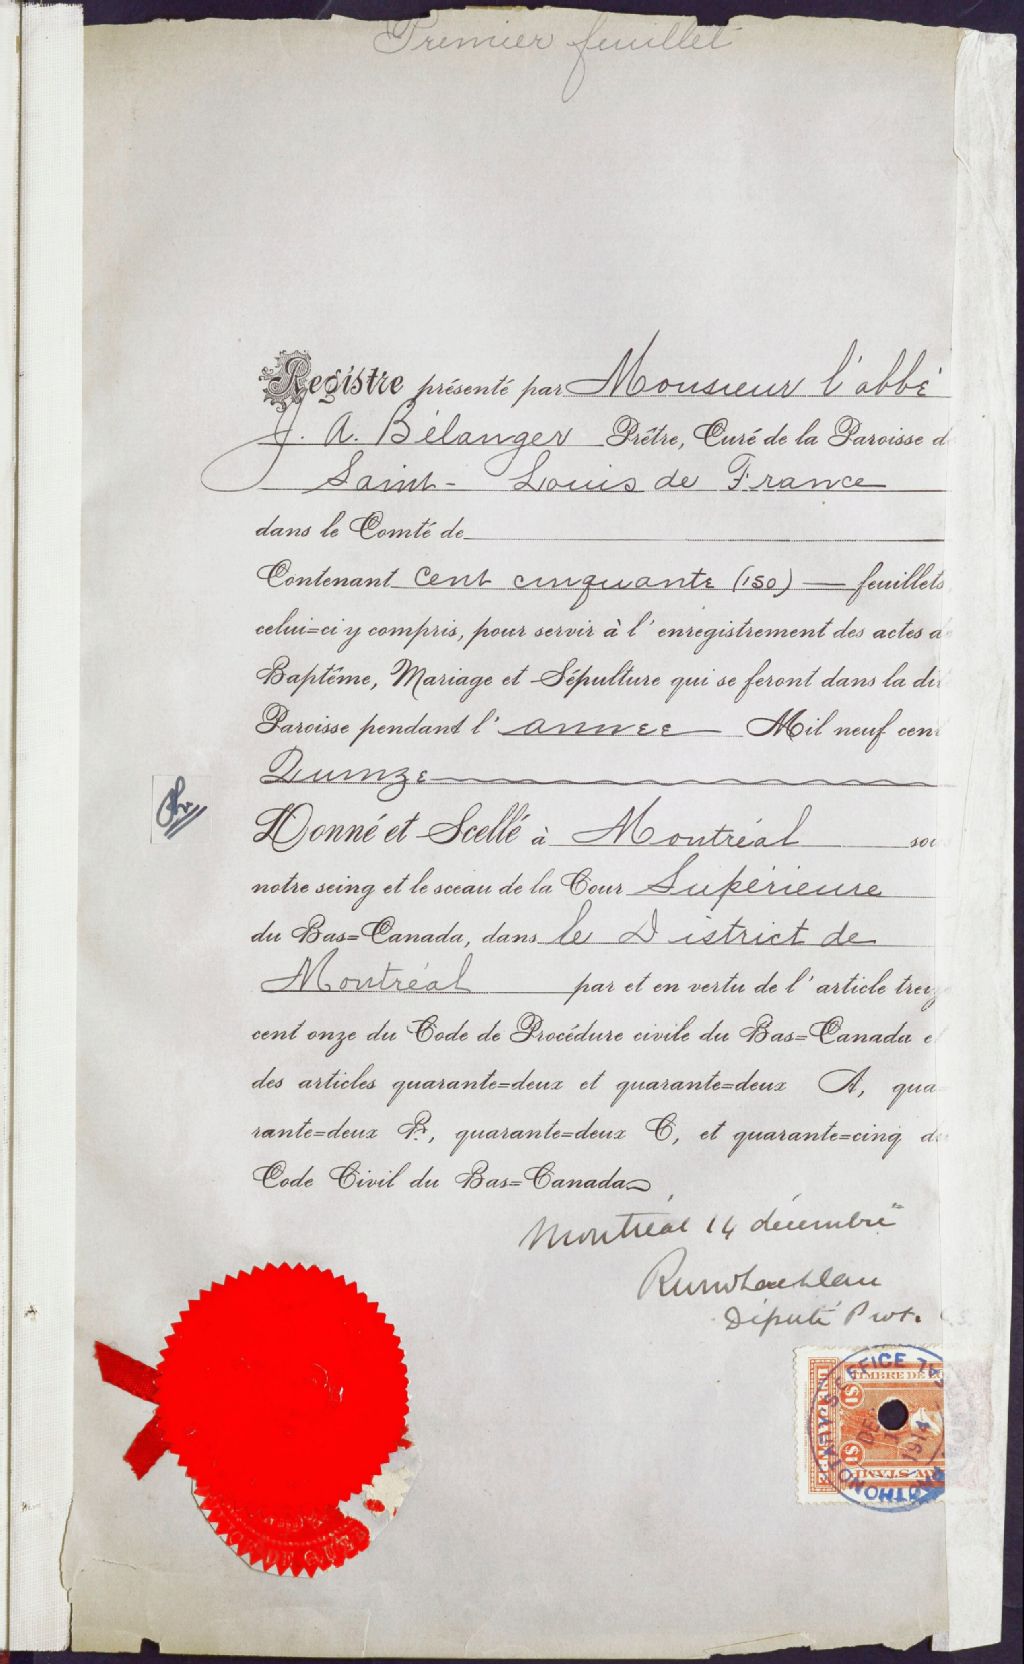 Premier feuillet
Registre présenté par Monsieur l'abbé
J. A. Bélanger Prêtre, Curé de la Paroisse d
Saint- Louis de France
dans le Comté de
Contenant cent cinquante (150) feuillets
celui=ci y compris, pour servir à l'enregistrement des actes d
Baptême, Mariage et Sépulture qui se feront dans la dit
Paroisse pendant l'année Mil neuf cent
Quinze
Donné et Scellé à Montréal sous
notre seing et le sceau de la Cour Supérieure
du Bas=Canada, dans le District de
Montréal par et en vertu de l'article treize
cent onze du Code de Procédure civile du Bas=Canada e
des articles quarante=deux et quarante=deux A, qua=
rante=deux B, quarante=deux C, et quarante=cinq du
Code Civil du Bas=Canada
Montréal 14 décembre
Député Prot. C.S.
TIMBRE DE
$1
$1
LAW STAMP
DEC
1914